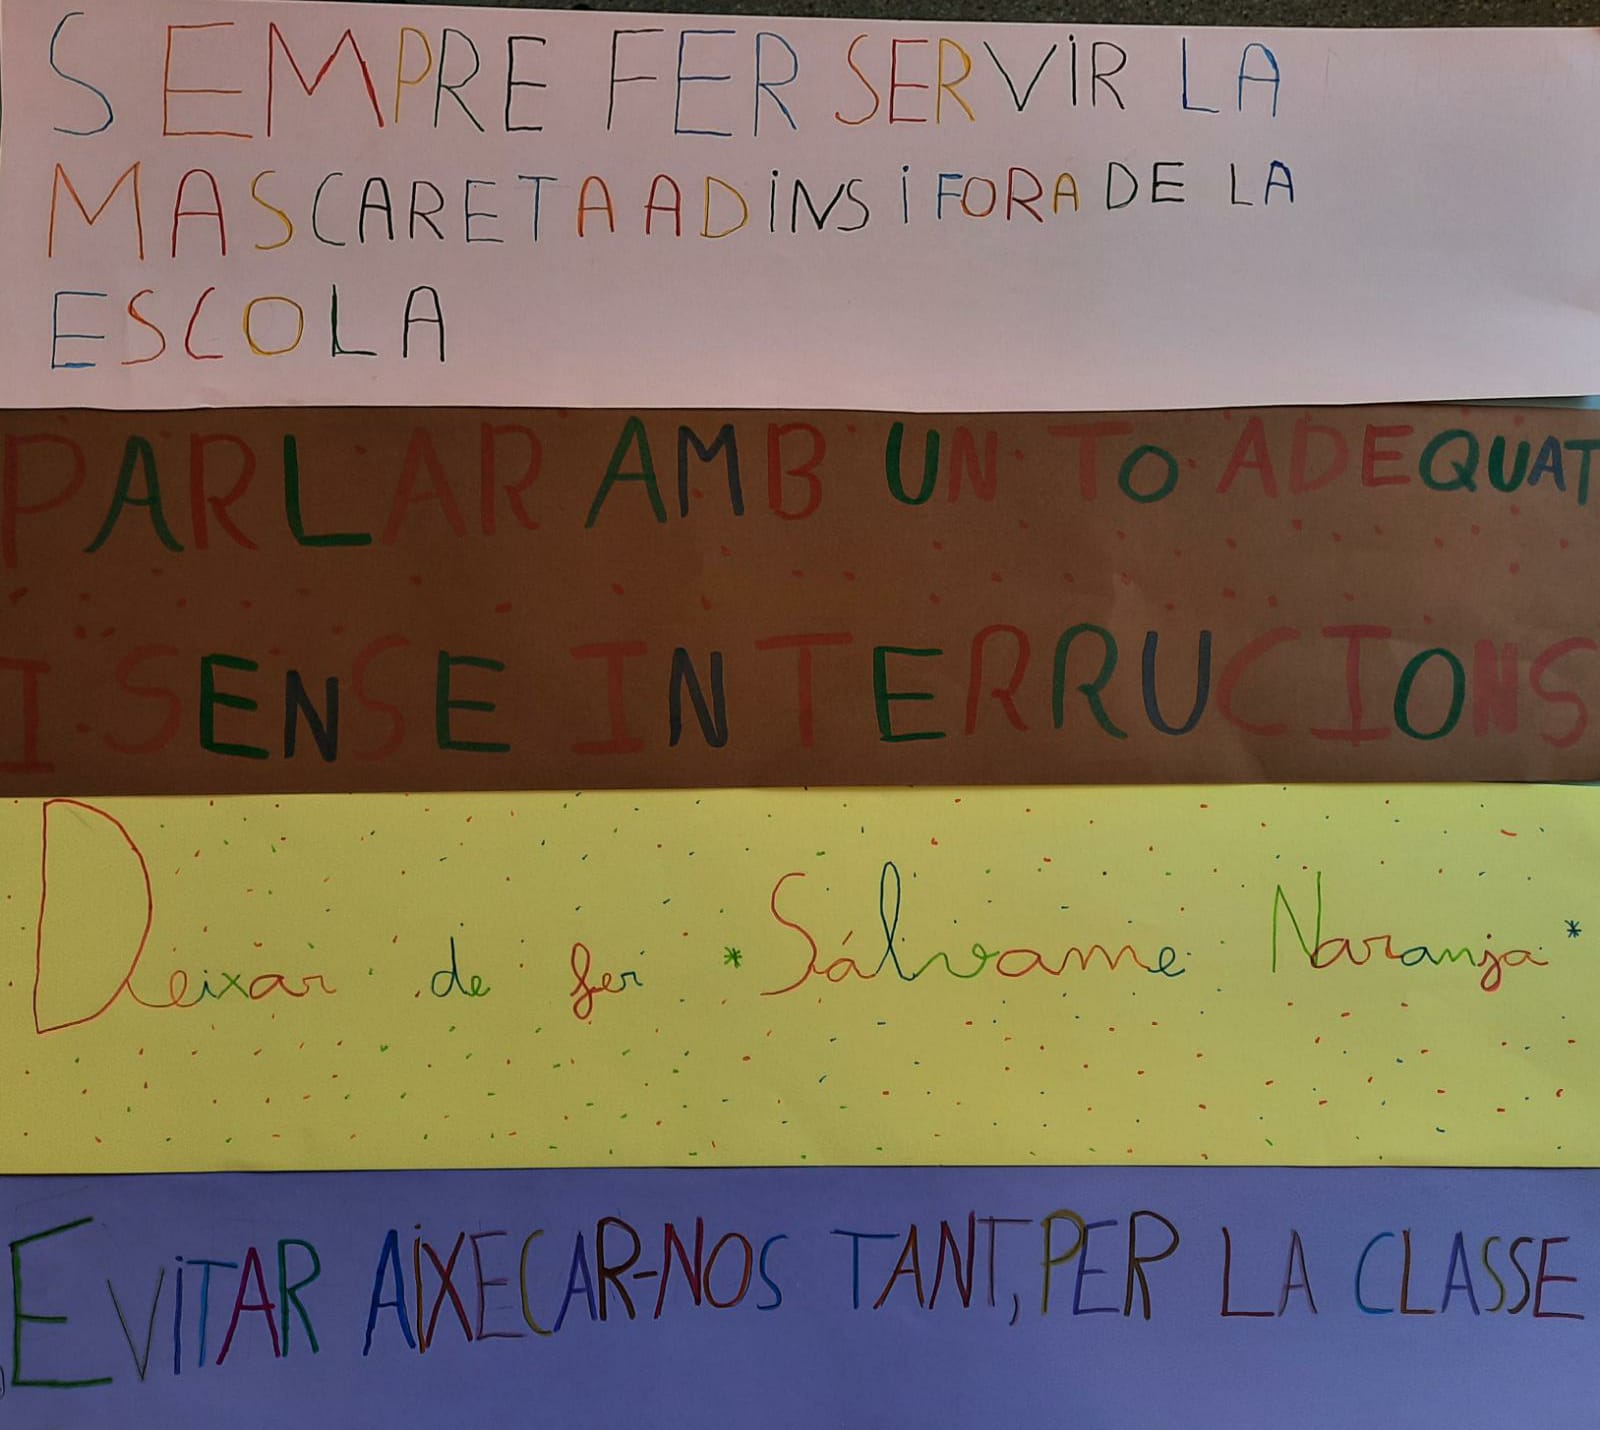 SEMPRE FER SERVIR LA
MASCARETA A DINS I FORA DE LA
ESCOLA
PARLAR AMB UN TO ADEQUAT
I SENSE INTERRUCIONS
Deixar de fer *Sálvame Naranja*
EVITAR AIXECAR-NOS TANT, PER LA CLASSE